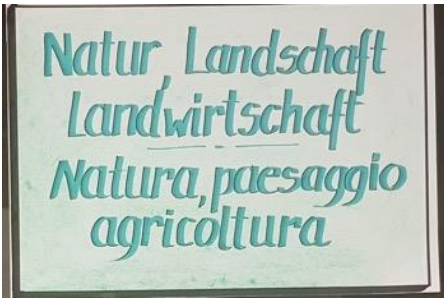 Natur, Landschaft
Landwirtschaft
Natura, paesaggio
agricoltura